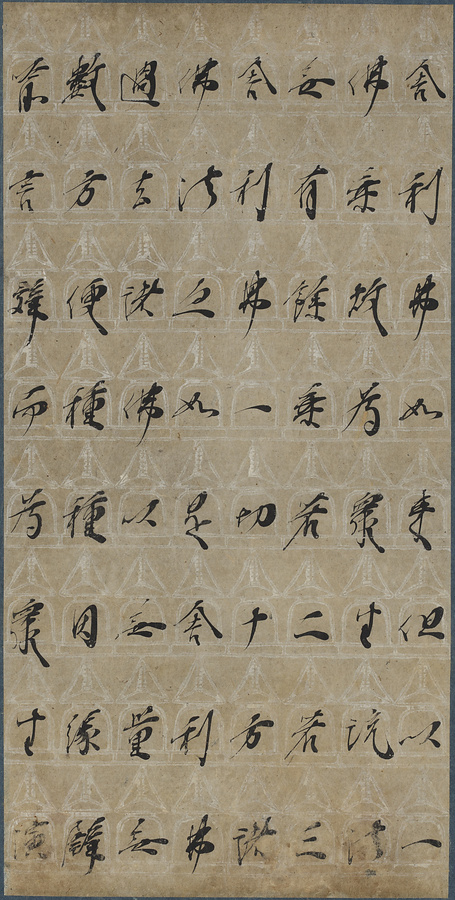 舍利弗如来但以一
佛乗故為衆生説法
無有餘乗若二若三
舍利弗一切十方諸
佛法亦如是舍利弗
過去諸佛以無量無
數方便種種因縁譬
喩言辭而為衆生演